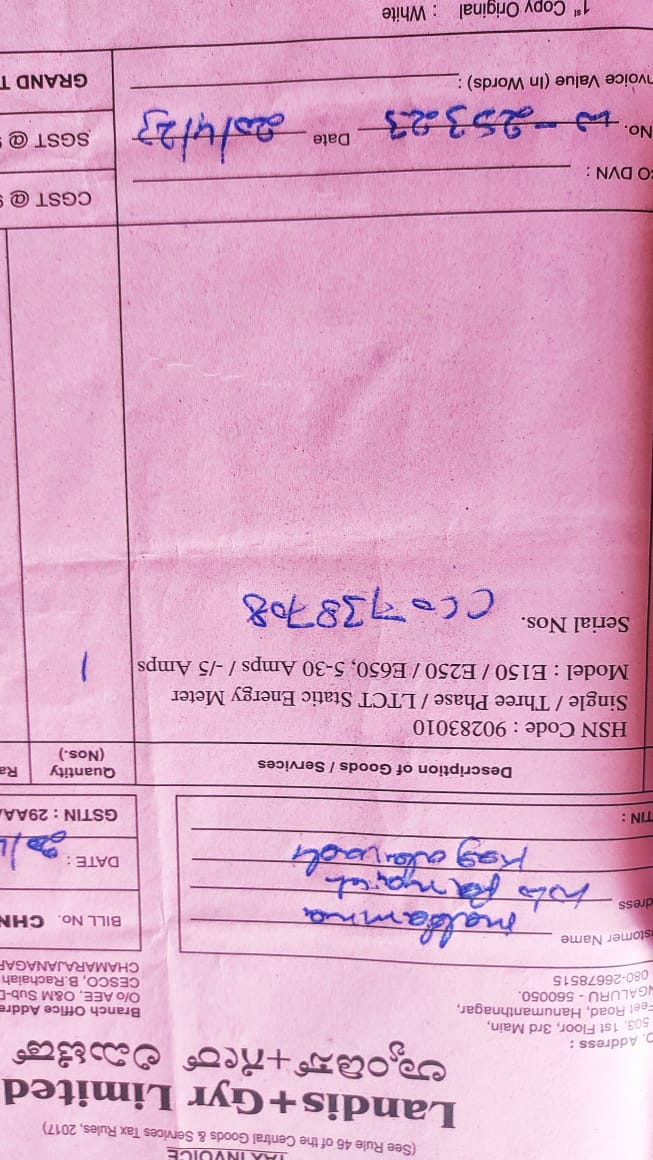 TAX INVOICE
(See Rule 46 of the Central Goods & Services Tax Rules, 2017)
Landis+Gyr Limited
ಲ್ಯಾಂಡಿಸ್+ಗೇರ್ ಲಿಮಿಟೆಡ್
Address :
503, 1st Floor, 3rd Main,
Feet Road, Hanumanthnagar,
NGALURU - 560050.
080-26678515
Branch Office Addre
O/o AEE, O&M Sub-D
CESCO, B.Rachaiah
CHAMARAJANAGAR
stomer Name mabamma
dress
TIN :
BILL No. CHN
DATE : 20/4
GSTIN : 29AA
Description of Goods / Services
Quantity (Nos.)
Ra
HSN Code : 90283010
Single / Three Phase / LTCT Static Energy Meter
Model : E150 / E250 / E650, 5-30 Amps / -/5 Amps 1
Serial Nos. CCO 738708
CO DVN :
CGST @ 9
No. W-25323 Date 20/4/23
SGST @ 9
nvoice Value (In Words) :
GRAND T
1st Copy Original : White